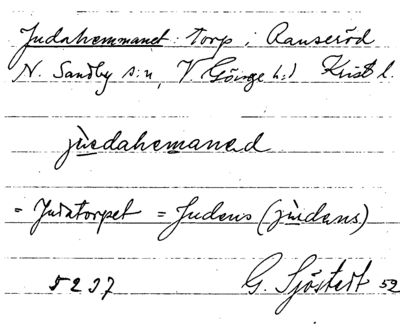 Judahemmanet: torp i Ranseröd
N. Sandby s:n, V Göinge h:d Krist l.
júedahemaned
= Judatorpet = Judens (jùdens)
5237 G. Sjöstedt 52